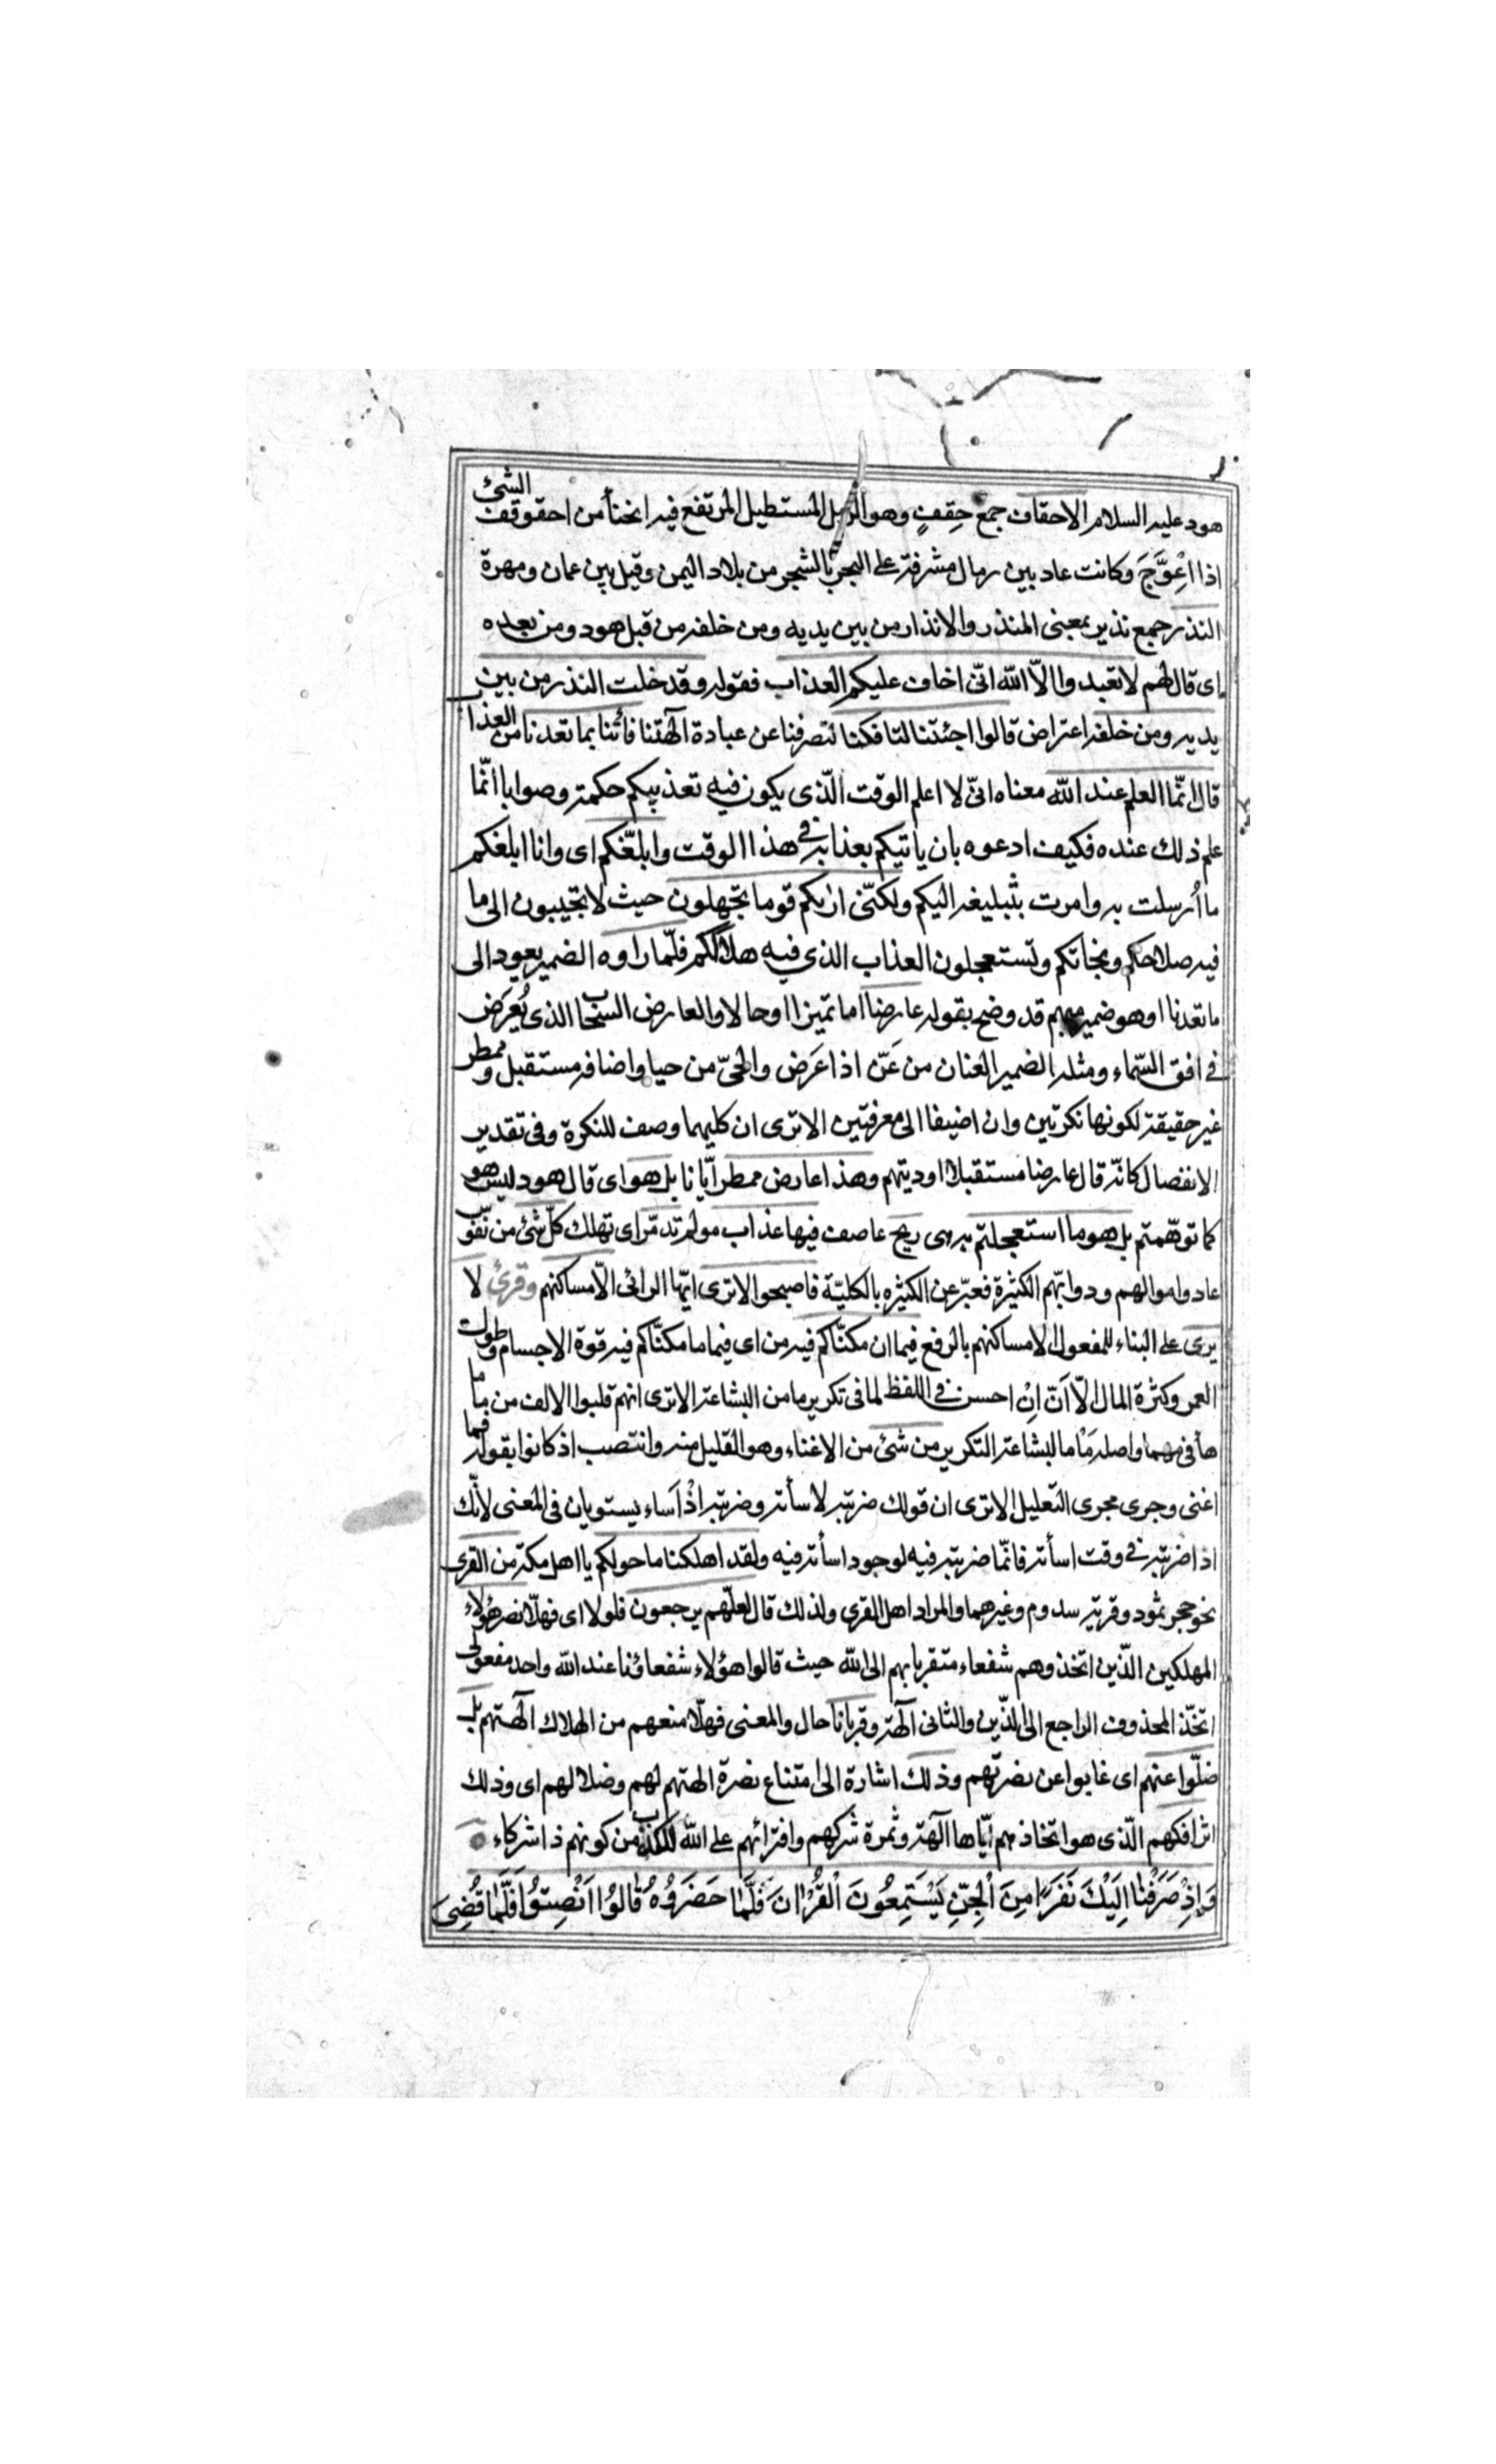 هود عليه السلام الاحقاف جمع حِقفٍ وهو الرمل المستطيل المرتفع فيه انحناً من احقوقف الشئ
اذا اعْوَّجَ وكانت عاد بين رمال مشرفة على البحر بالشجر من بلاد اليمن وقيل بين عمان ومهرة
النذر جمع نذير بمعنى المنذر والانذار من بين يديه ومن خلفه من قبل هود ومن بعده
اى قال لهم لا تعبدوا الّا الله انّى اخاف عليكم العذاب فقوله وقد خلت النذر من بين
يديه ومن خلفه اعتراض قالوا اجئتنا لتافكنا لتصرفنا عن عبادة آلهتنا فأتنا بما تعدنا من العذا
قال انّما العلم عند الله معناه انّى لا اعلم الوقت الّذى يكون فيه تعذيبكم حكمة وصوابا انّما
علم ذلك عنده فكيف ادعوه بان ياتيكم بعذابه فى هذا الوقت وابلّغكم اى وانا ابلغكم
ما اُرسلت به وامرت بتبليغه اليكم ولكنّى اريكم قوما تجهلون حيث لا تجيبون الى ما
فيه صلاحكم ونجاتكم وتستعجلون العذاب الذى فيه هلاككم فلّما راوه الضمير يعود الى
ما تعدنا او هو ضمير مبهم قد وضح بقوله عارضا اما تميزا او حالا والعارض السحاب الذى يُعرَض
فى افق السّماء ومثله الضمير العنان من عَنّ اذا عَرَض والحىّ من حيا واضافة مستقبل وممطر
غير حقيقة لكونها نكرتين وان اضيفا الى معرفتين الا ترى ان كليهما وصف للنكرة وفى تقدير
الانفصال كانّه قال عارضا مستقبلا اوديتهم وهذا عارض ممطر ايّانا بل هو اى قال هود ليس هو
كما توهّمتم بل هو ما استعجلتم به هى ريح عاصف فيها عذاب مولم تدمّر اى تهلك كلّ شئ من نفو
عاد واموالهم ودوابّهم الكثيرة فعبّر عن الكثيرة بالكليّة فاصبحوا لا ترى ايّها الرائى الّا مساكنهم وقرئ لا
يرى على البناء للمفعول الا مساكنهم بالرفع فيما ان مكنّاكم فيه من اى فيما ما مكنّاكم فيه قوة الاجسام وطول
العمر وكثرة المال الّا اَنّ اِنْ احسن فى اللفظ لما فى تكرير ما من البشاعة الا ترى انهم قلبوا الالف من ما ما
هأ فى مهما واصله مَا ما لبشاعة التكرير من شئ من الاغناء وهو القليل منه وانتصب اذ كانوا بقوله فما
اغنى وجرى مجرى التعليل الا ترى ان قولك ضربته لاسأته وضربته اذْ اَساء يستويان فى المعنى لانّك
اذا ضربته فى وقت اسأته فانّما ضربته فيه لوجود اسأته فيه ولقد اهلكنا ما حولكم يا اهل مكة من القرى
نحو حجر ثمود وقرية سدوم وغيرهما والمراد اهل القرى ولذلك قال لعلّهم يرجعون فلولا اى فهلّا نصر هؤلاء
المهلكين الّذين اتخذوهم شفعاء متقربا بهم الى الله حيث قالوا هؤلاء شفعاؤنا عند الله واحد مفعولى
اتخّذ المحذوف الراجع الى الّذين والثانى آلهة وقربانا حال والمعنى فهلّا منعهم من الهلاك آلهتهم بل
ضلّوا عنهم اى غابوا عن نصرتهم وذلك اشارة الى امتناع نصرة الهتهم لهم وضلالهم اى وذلك
اثر افكهم الّذى هو اتخاذهم ايّاها آلهة وثمرة شركهم وافترائهم على الله الكذب من كونهم ذا شركاء
وَاِذْ صَرَفْنا اِلَيْكَ نَفَرًا مِنَ الْجِنِّ يَسْتَمِعُونَ الْقُرْانَ فَلَمّا حَضَرُوُهُ قالُوا اَنْصِتُوا فَلَمّا قُضِىَ